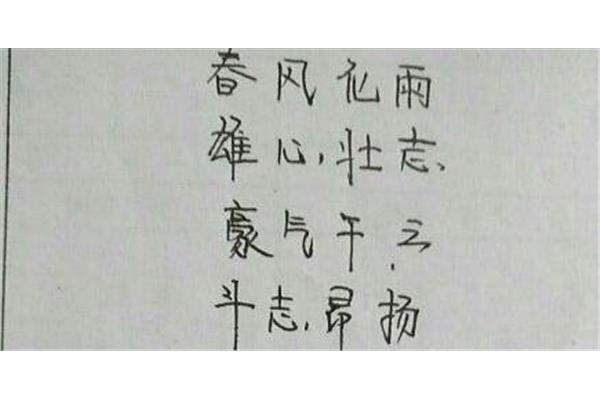 春风化雨
雄心壮志
豪气干云
斗志昂扬